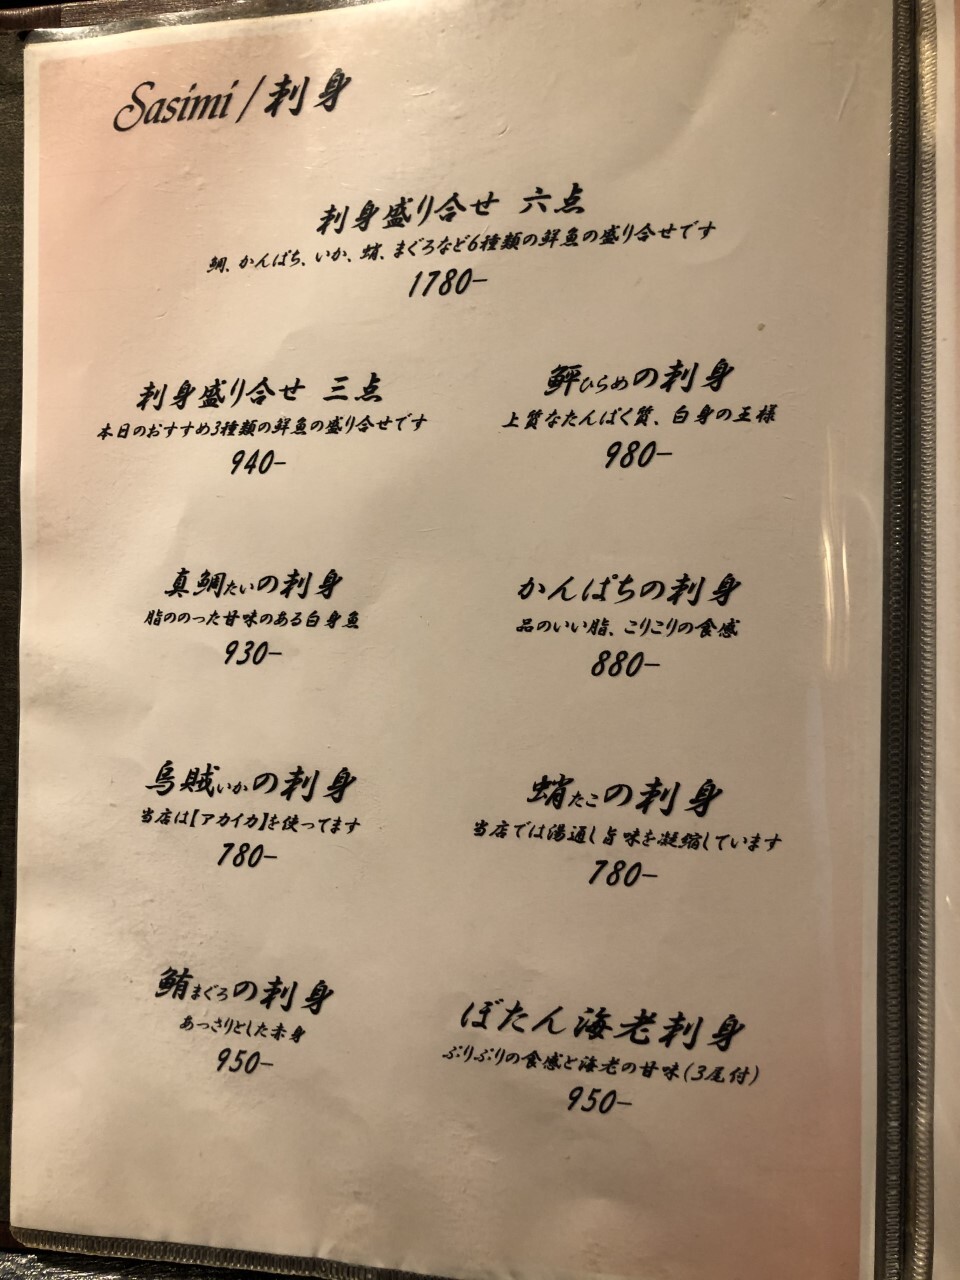 Sasimi / 刺身
刺身盛り合せ 六点
鯛、かんぱち、いか、蛸、まぐろなど6種類の鮮魚の盛り合せです
1780-
刺身盛り合せ 三点
本日のおすすめ3種類の鮮魚の盛り合せです
940-
鮃ひらめの刺身
上質なたんぱく質、白身の王様
980-
真鯛たいの刺身
脂ののった甘味のある白身魚
930-
かんぱちの刺身
品のいい脂、こりこりの食感
880-
烏賊いかの刺身
当店は【アカイカ】を使ってます
780-
蛸たこの刺身
当店では湯通し旨味を凝縮しています
780-
鮪まぐろの刺身
あっさりとした赤身
950-
ぼたん海老刺身
ぷりぷりの食感と海老の甘味(3尾付)
950-